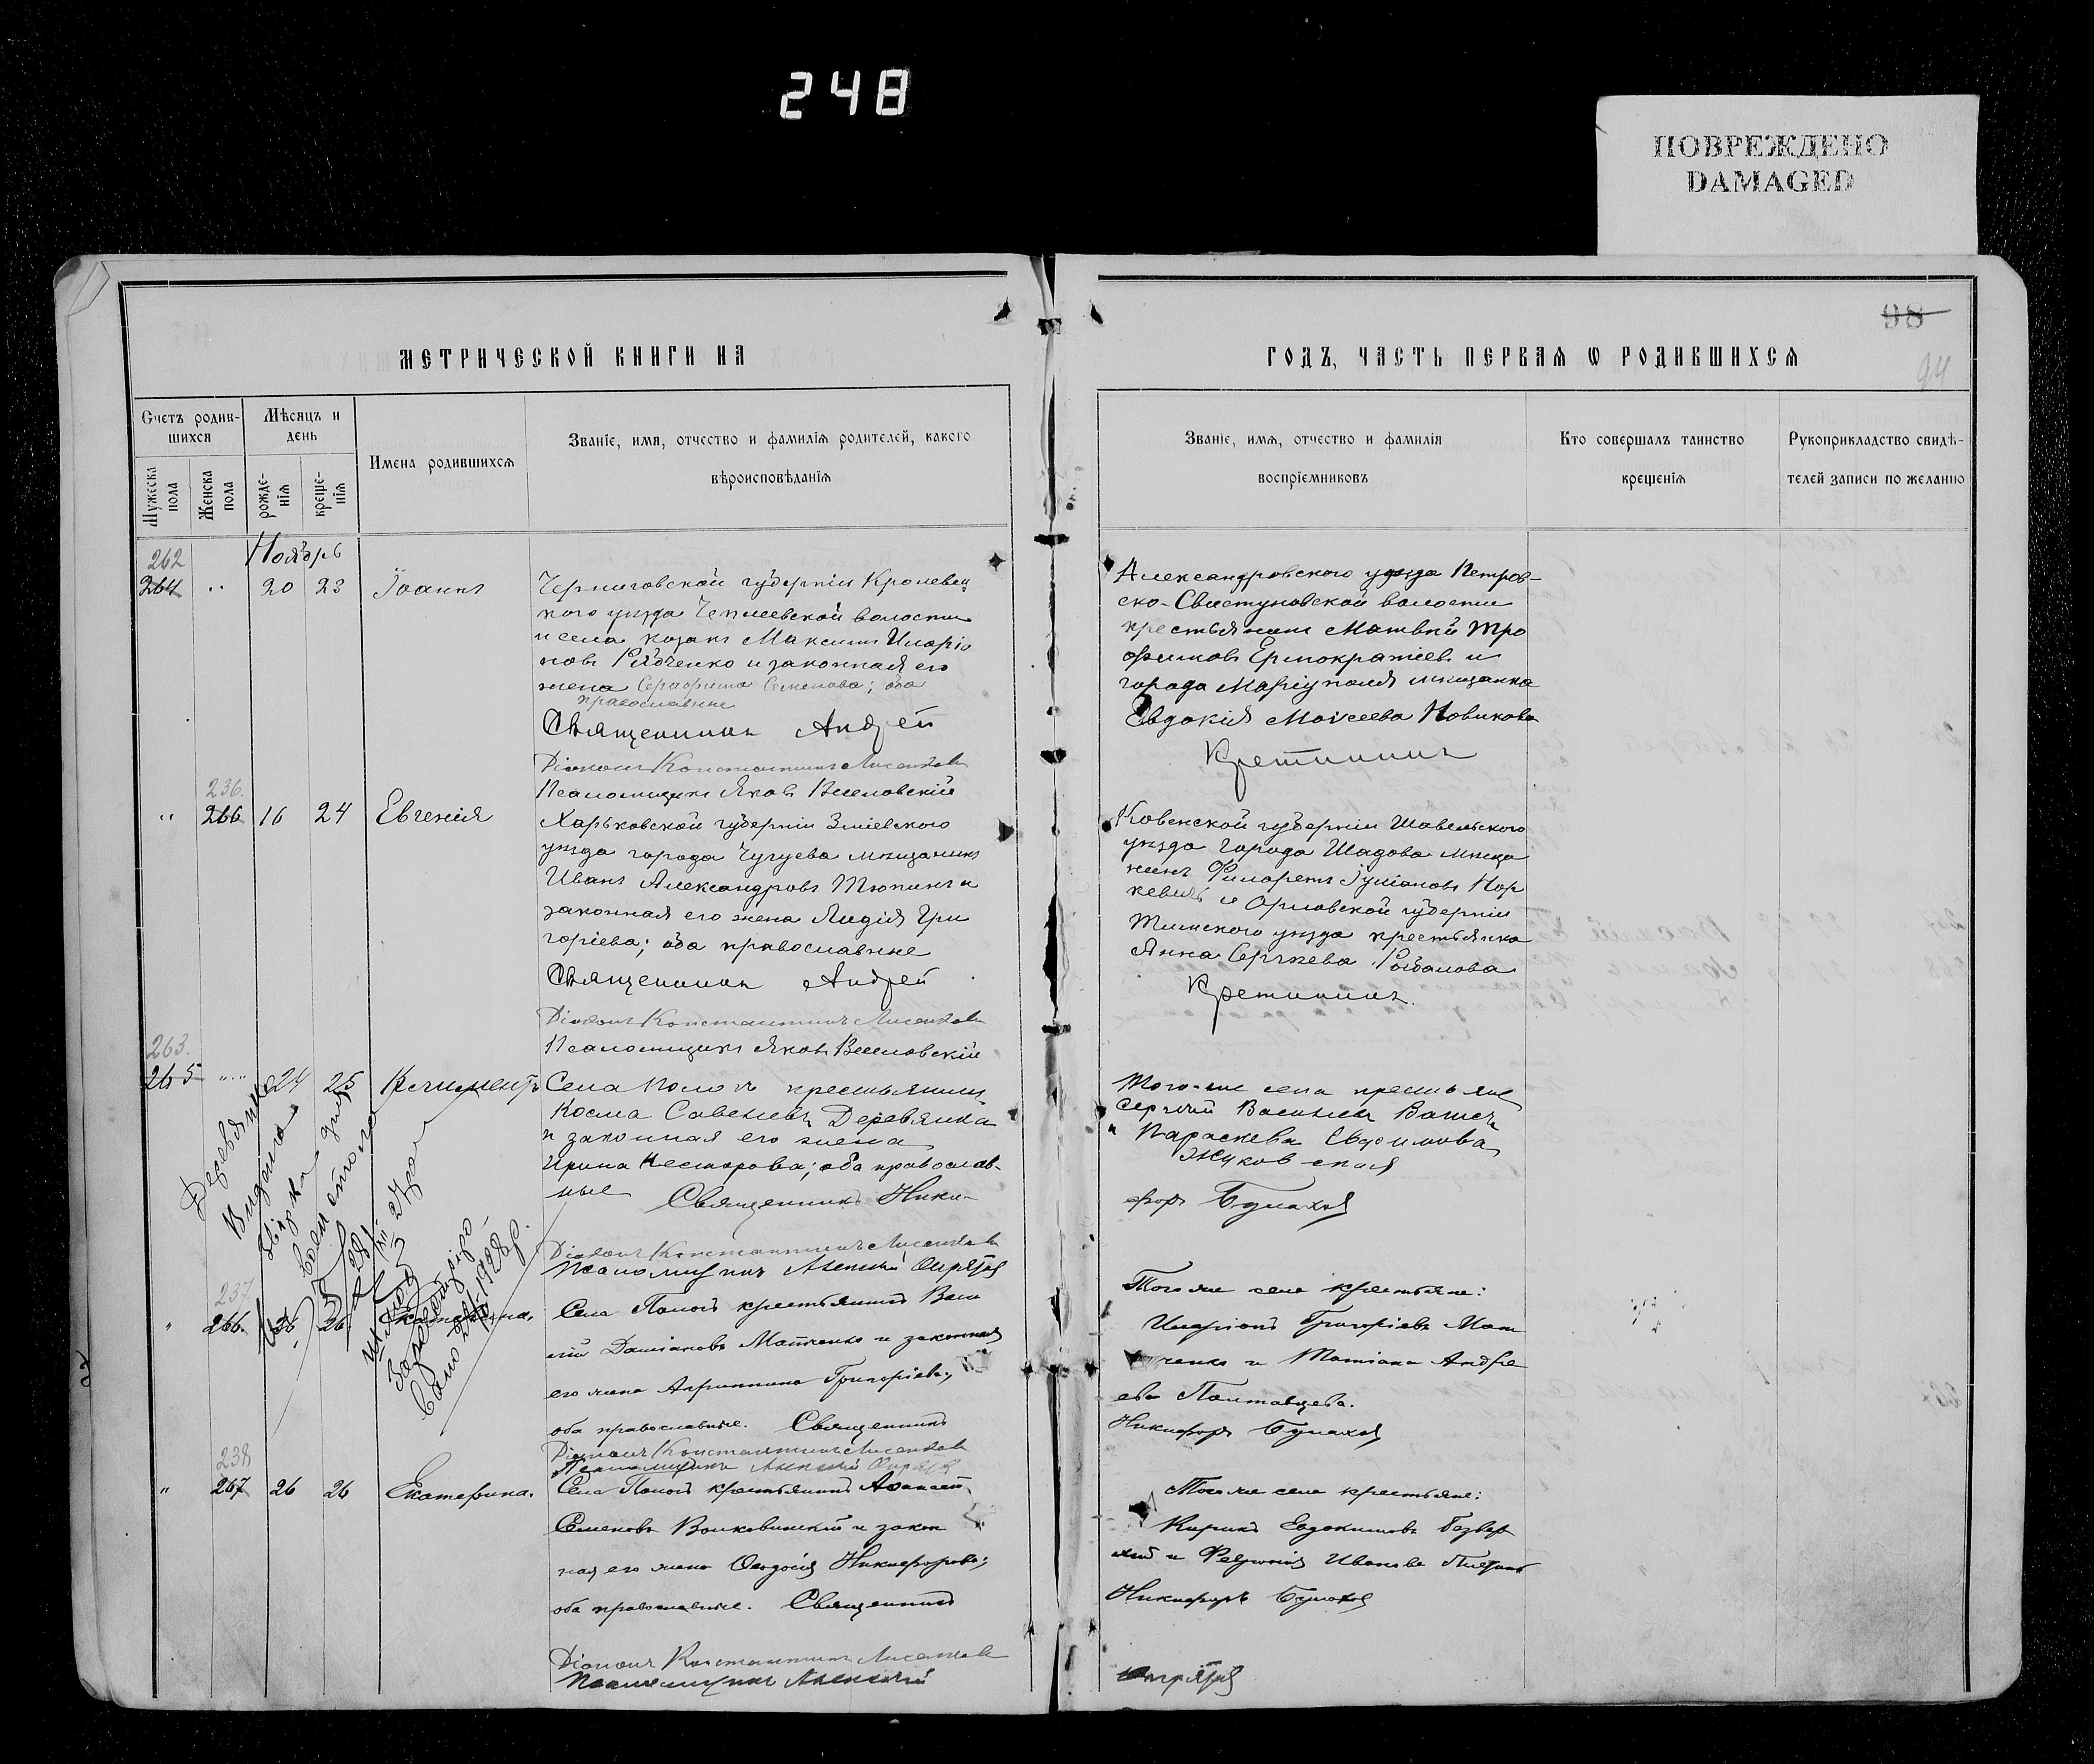 248
ПОВРЕЖДЕНО
DAMAGED
98
94
МЕТРИЧЕСКОЙ КНИГИ НА
ГОДЪ, ЧАСТЬ ПЕРВАЯ Ѡ РОДИВШИХСЯ
Счетъ родив-
шихся
Мужеска
пола
Женска
пола
Мѣсяцъ и
день
рожде-
нія
креще-
нія
Имена родившихся
Званіе, имя, отчество и фамилія родителей, какого
вѣроисповѣданія
Званіе, имя, отчество и фамилія
воспріемниковъ
Кто совершалъ таинство
крещенія
Рукоприкладство свидѣ-
телей записи по желанію
Ноябрь
262
264 " 20 23 Іоаннъ
Черниговской губерніи Кролевец
кого уѣзда Чеплеевской волости
и села козакъ Максимъ Иларіо
новъ Рябченко и законная его
жена Серафима Семенова; оба
православные
Священникъ Андрей
Діаконъ Константинъ Лисенков
Псаломщикъ Яковъ Веселовскій
Александровского уѣзда Петров-
ско-Свистуновской волости
крестьянинъ Матвѣй Тро
фимовъ Ермократіевъ и
города Маріуполя мѣщанка
Евдокія Моисеева Новикова
Кретининъ
236.
" 266 16 24 Евгенія
Харьковской губерніи Зміевского
уѣзда города Чугуева мѣщанинъ
Иванъ Александровъ Тюпинъ и
законная его жена Лидія Гри
горіева; оба православные
Священникъ Андрей
Діаконъ Константинъ Лисенков
Псаломщикъ Яковъ Веселовскій
Ковенской губерніи Шавельского
уѣзда города Шадова мѣща
нинъ Филаретъ Іуліановъ Нор
кевичъ и Орловской губерніи
уѣзда крестьянка
Анна Сергѣева Рыбалова
Кретининъ.
263.
265 " 24 25 Климентъ
Села Пологъ крестьянинъ
Косма Савельевъ Деревянка
и законная его жена
Ирина Несторова; оба православ-
ные Священникъ Ники-
Діаконъ Константинъ Лисенков
Псаломщикъ Алексѣй
Того-же села крестьяне
Сергѣй Васильевъ
и Параскева Евфимова
Жуковская
форъ
Деревянко
Видана
1928р.
237.
" 266. 26 26 Екатерина.
Села Пологъ крестьянинъ Васи
лій Даміановъ Матченко и законная
его жена Агриппина Григоріева;
оба православные. Священникъ
Діаконъ Константинъ Лисенков
Псаломщикъ Алексѣй
Того же села крестьяне:
Иларіонъ Григоріевъ Мат
ченко и Татіана Андре
ева Полтавцева.
Никифоръ
238
" 267 26 26 Екатерина.
Села Пологъ крестьянинъ
Семеновъ Волковинскій и закон
ная его жена Ѳеодосія Никифорова;
оба православные. Священникъ
Діаконъ Константинъ Лисенков
Псаломщикъ Алексѣй
Того же села крестьяне:
Кирикъ Евдокимовъ Безвер
хій и Иванова
Никифоръ